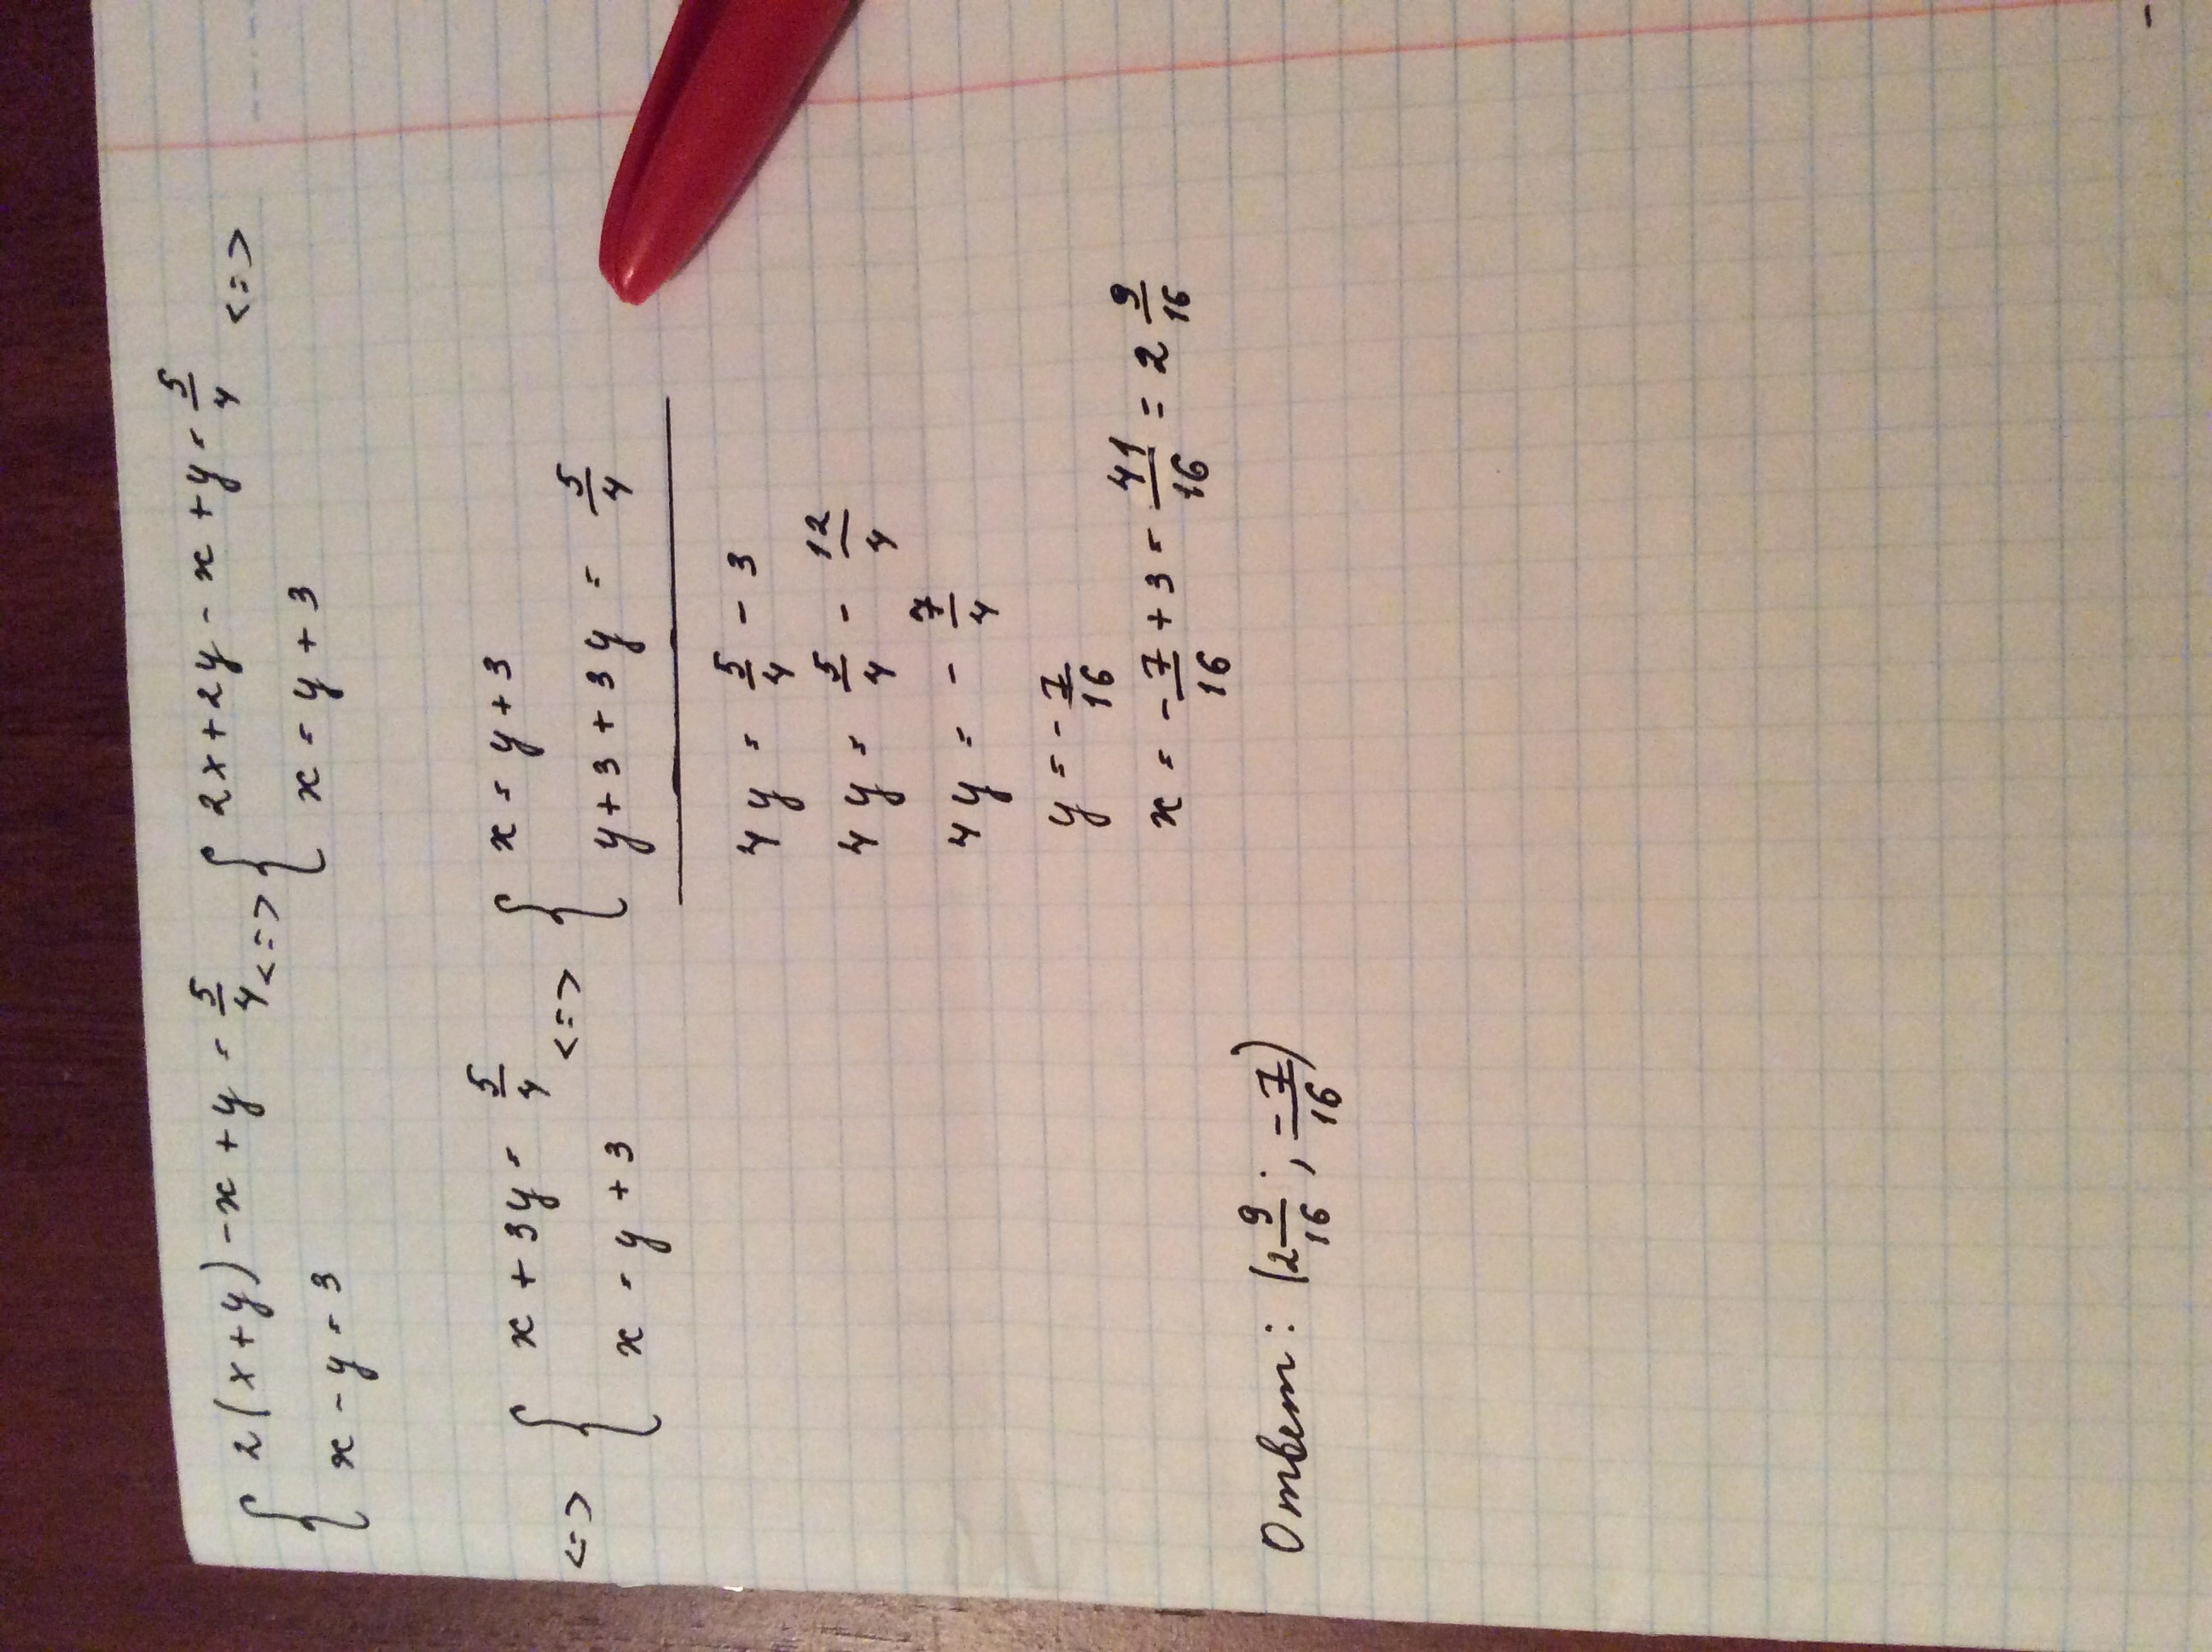 { 2(x+y)-x+y=5/4 <=> { 2x+2y-x+y=5/4 <=>
x-y=3 x=y+3
<=> { x+3y=5/4 <=> { x=y+3
x=y+3 y+3+3y=5/4
4y=5/4-3
4y=5/4-12/4
4y=-7/4
y=-7/16
x=-7/16+3=41/16=2 9/16
Ответ: (2 9/16; -7/16)